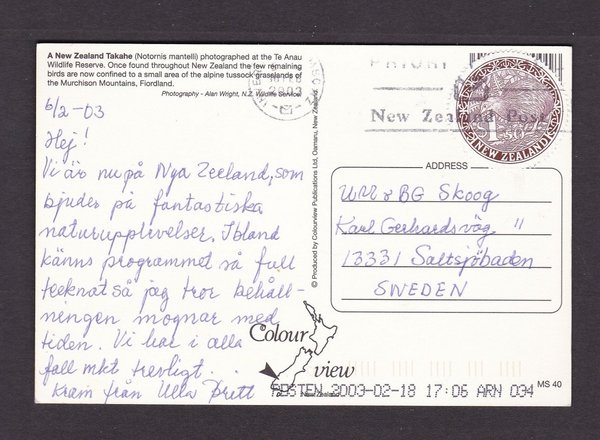 A New Zealand Takahe (Notornis mantelli) photographed at the Te Anau
Wildlife Reserve. Once found throughout New Zealand the few remaining
birds are now confined to a small area of the alpine tussock grasslands of
the Murchison Mountains, Fiordland.
Photography - Alan Wright, N.Z. Wildlife Service.
6/2-03
Hej!
Vi är nu på Nya Zeeland, som
bjuder på fantastiska
naturupplevelser. Ibland
känns programmet så full
tecknat så jag tror behåll-
ningen mognar med
tiden. Vi har i alla
fall mkt trevligt.
Kram från Ulla Britt
© Produced by Colourview Publications Ltd, Oamaru, New Zealand.
2003
New Zealand Post
$1.50
NEW ZEALAND
ADDRESS
BG Skoog
Karl Gerhardsväg 11
13331 Saltsjöbaden
SWEDEN
Colour
view
New Zealand
MS 40
POSTEN 2003-02-18 17:06 ARN 034